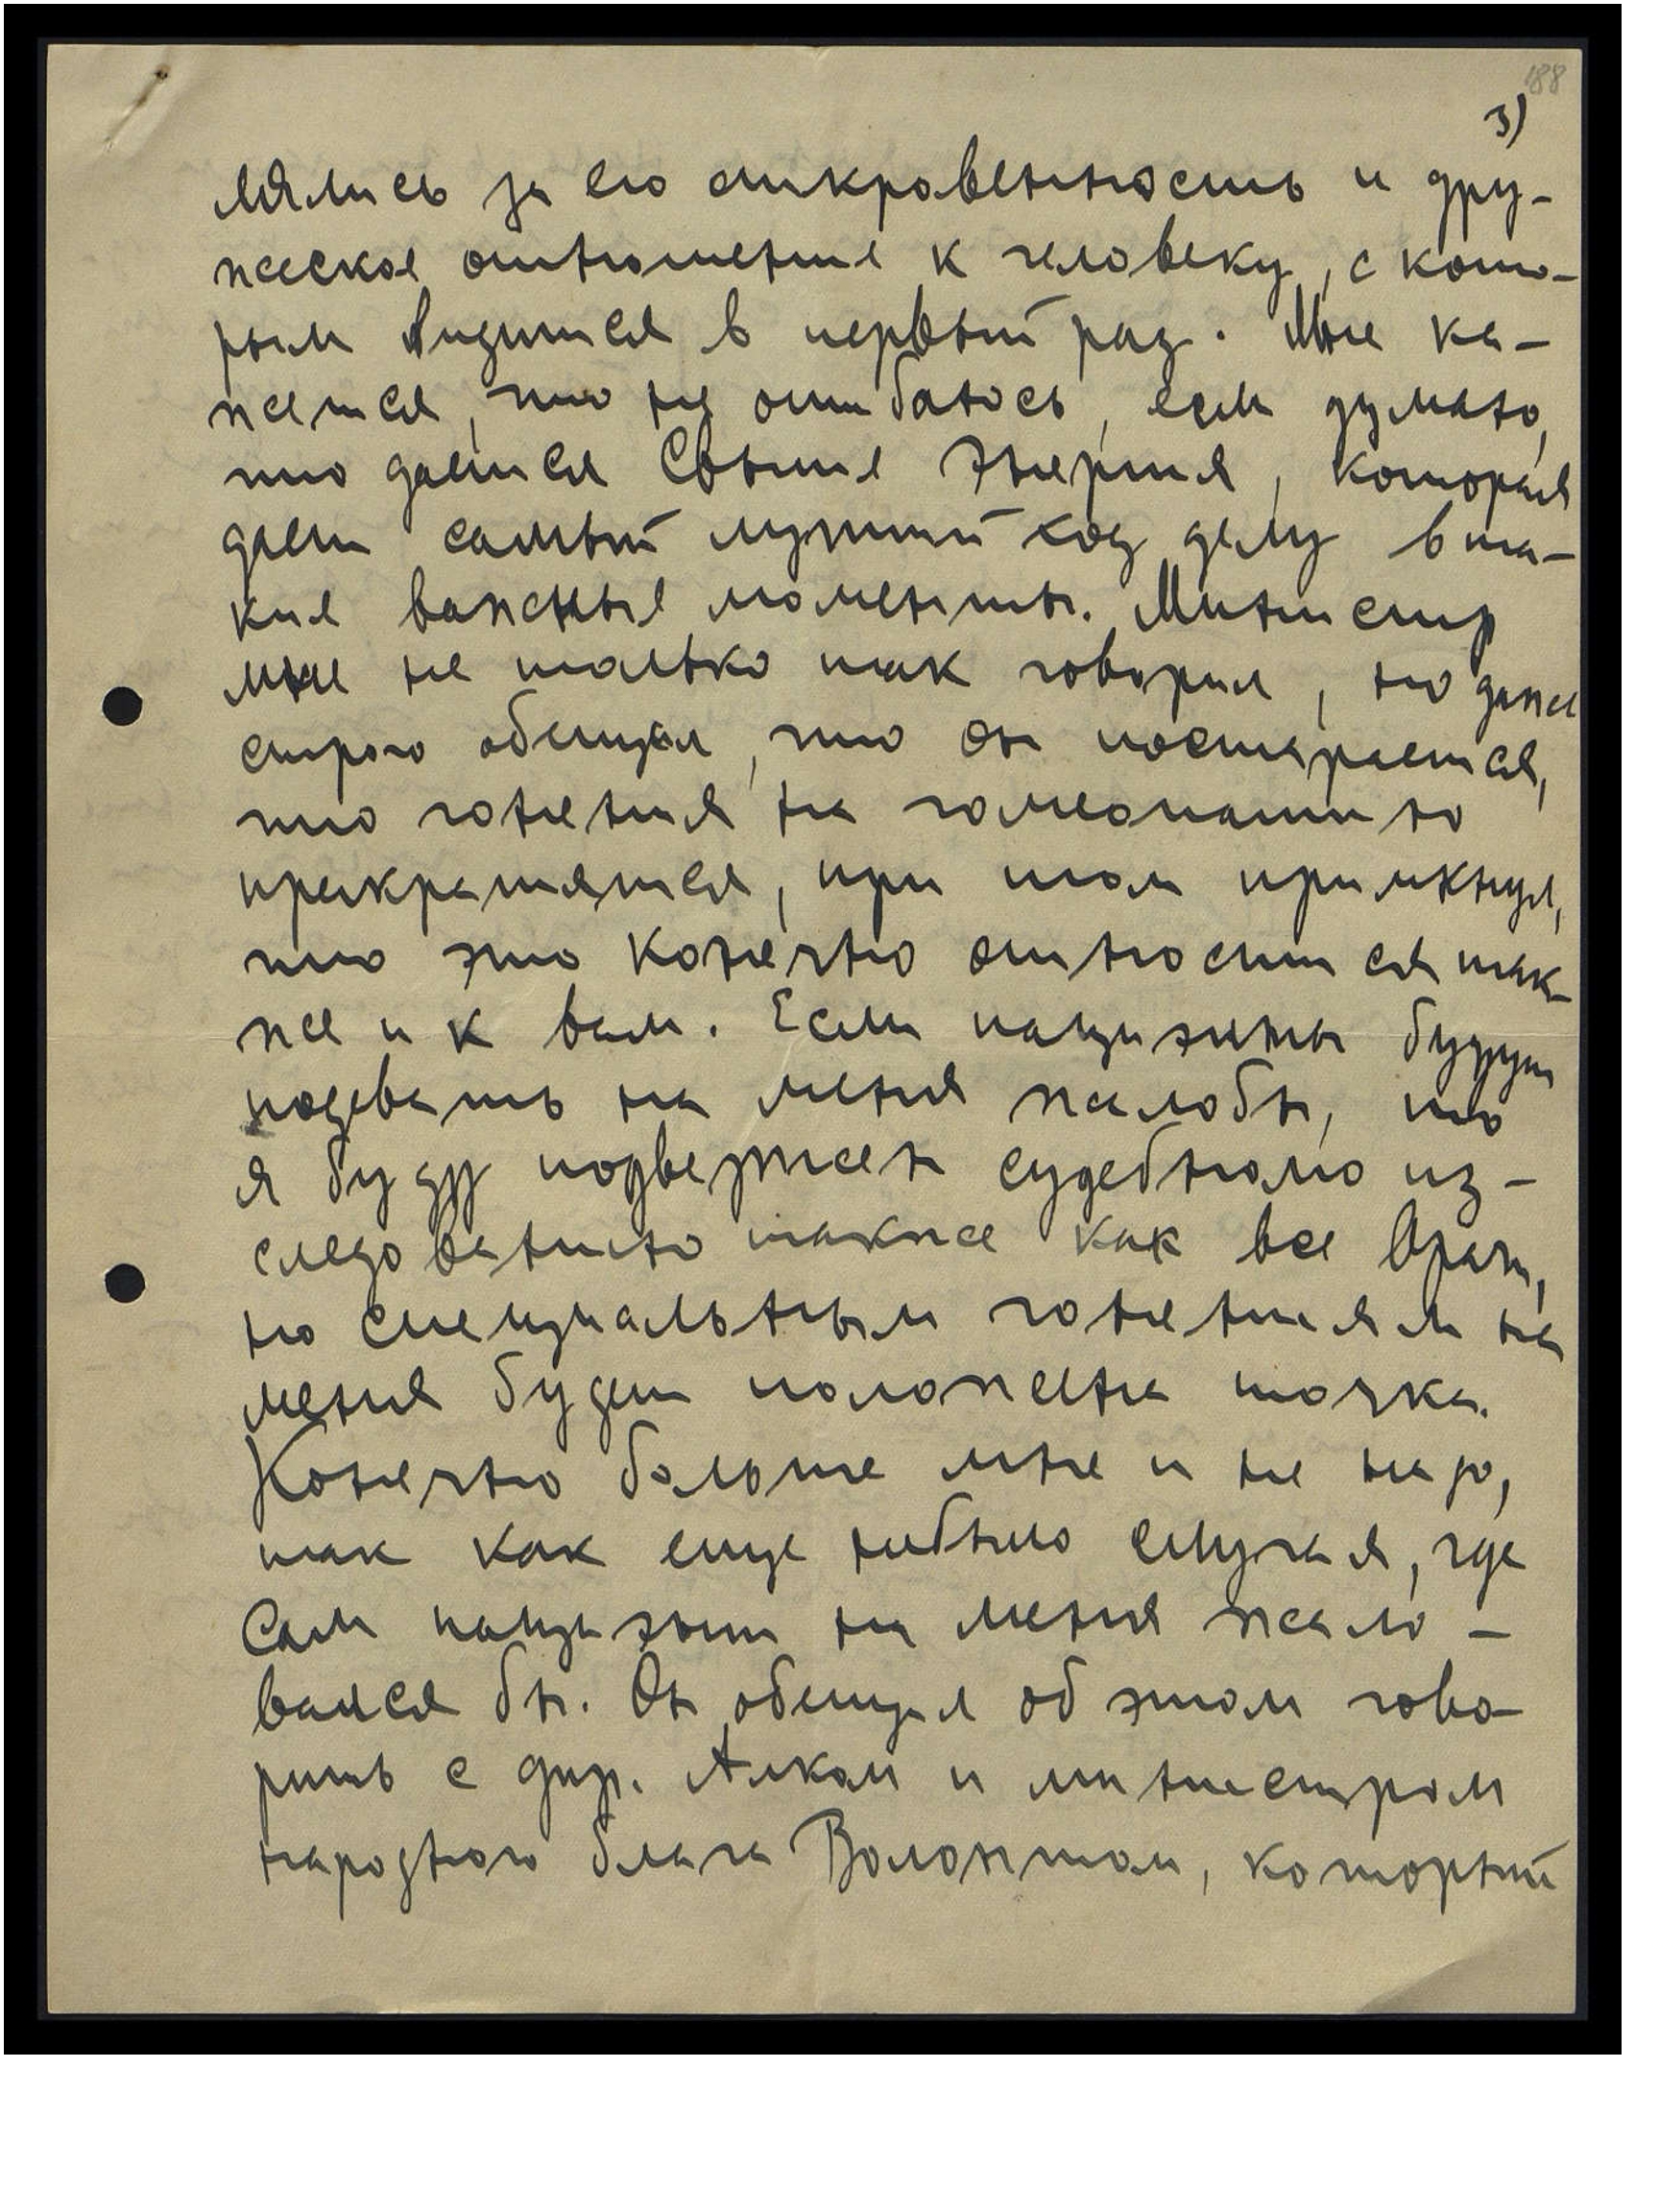 188
3)
лялись за его откровенность и дру-
жеское отношение к человеку, с кото-
рым видится в первый раз. Мне ка-
жется, что не ошибаюсь, если думаю,
что дается Свыше Энергия, которая
дает самый лучший ход делу в та-
кие важные моменты. Министр
мне не только так говорил, но даже
строго обещал, что он постарается,
что гонения на гомеопатию
прекратятся, при том примкнул,
что это конечно относится так-
же и к вам. Если пациэнты будут
подавать на меня жалобы, то
я буду подвержен судебному из-
следованию также как все врачи,
но специальным гонениям на
меня будет положена точка.
Конечно больше мне и не надо,
так как еще небыло случая, где
Сам пациэнт на меня жало-
вался бы. Он обещал об этом гово-
рить с дир. Алком и министром
народного блага Волонтом, который